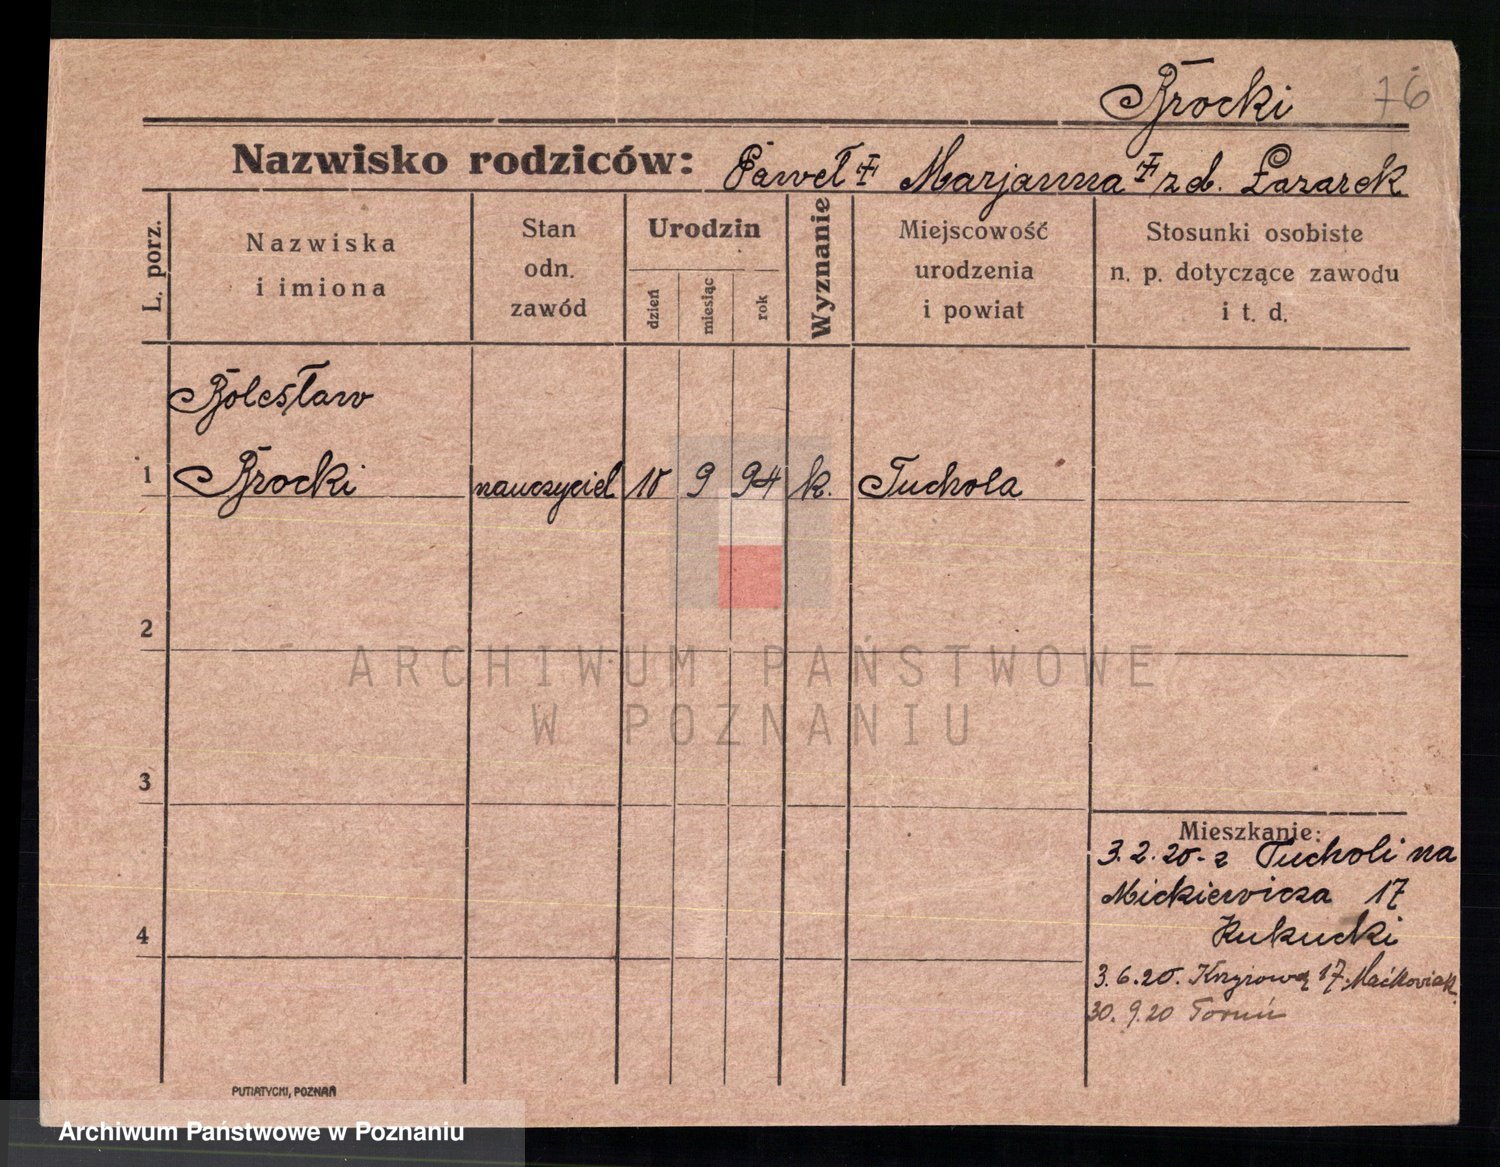 Brocki 76
Nazwisko rodziców: Paweł ‡ Marjanna ‡ z d. Łazarek
L. porz.
Nazwiska
i imiona
Stan
odn.
zawód
Urodzin
dzień
miesiąc
rok
Wyznanie
Miejscowość
urodzenia
i powiat
Stosunki osobiste
n. p. dotyczące zawodu
i t. d.
Bolesław
1 Brocki nauczyciel 10 9 94 k. Tuchola
2
3
4
ARCHIWUM PAŃSTWOWE
W POZNANIU
Mieszkanie:
3.2.20 - z Tucholi na
Mickiewicza 17
Kukucki
3.6.20. 17. Maćkowiak
30.9.20 Toruń
PUTIATYCKI, POZNAŃ
Archiwum Państwowe w Poznaniu